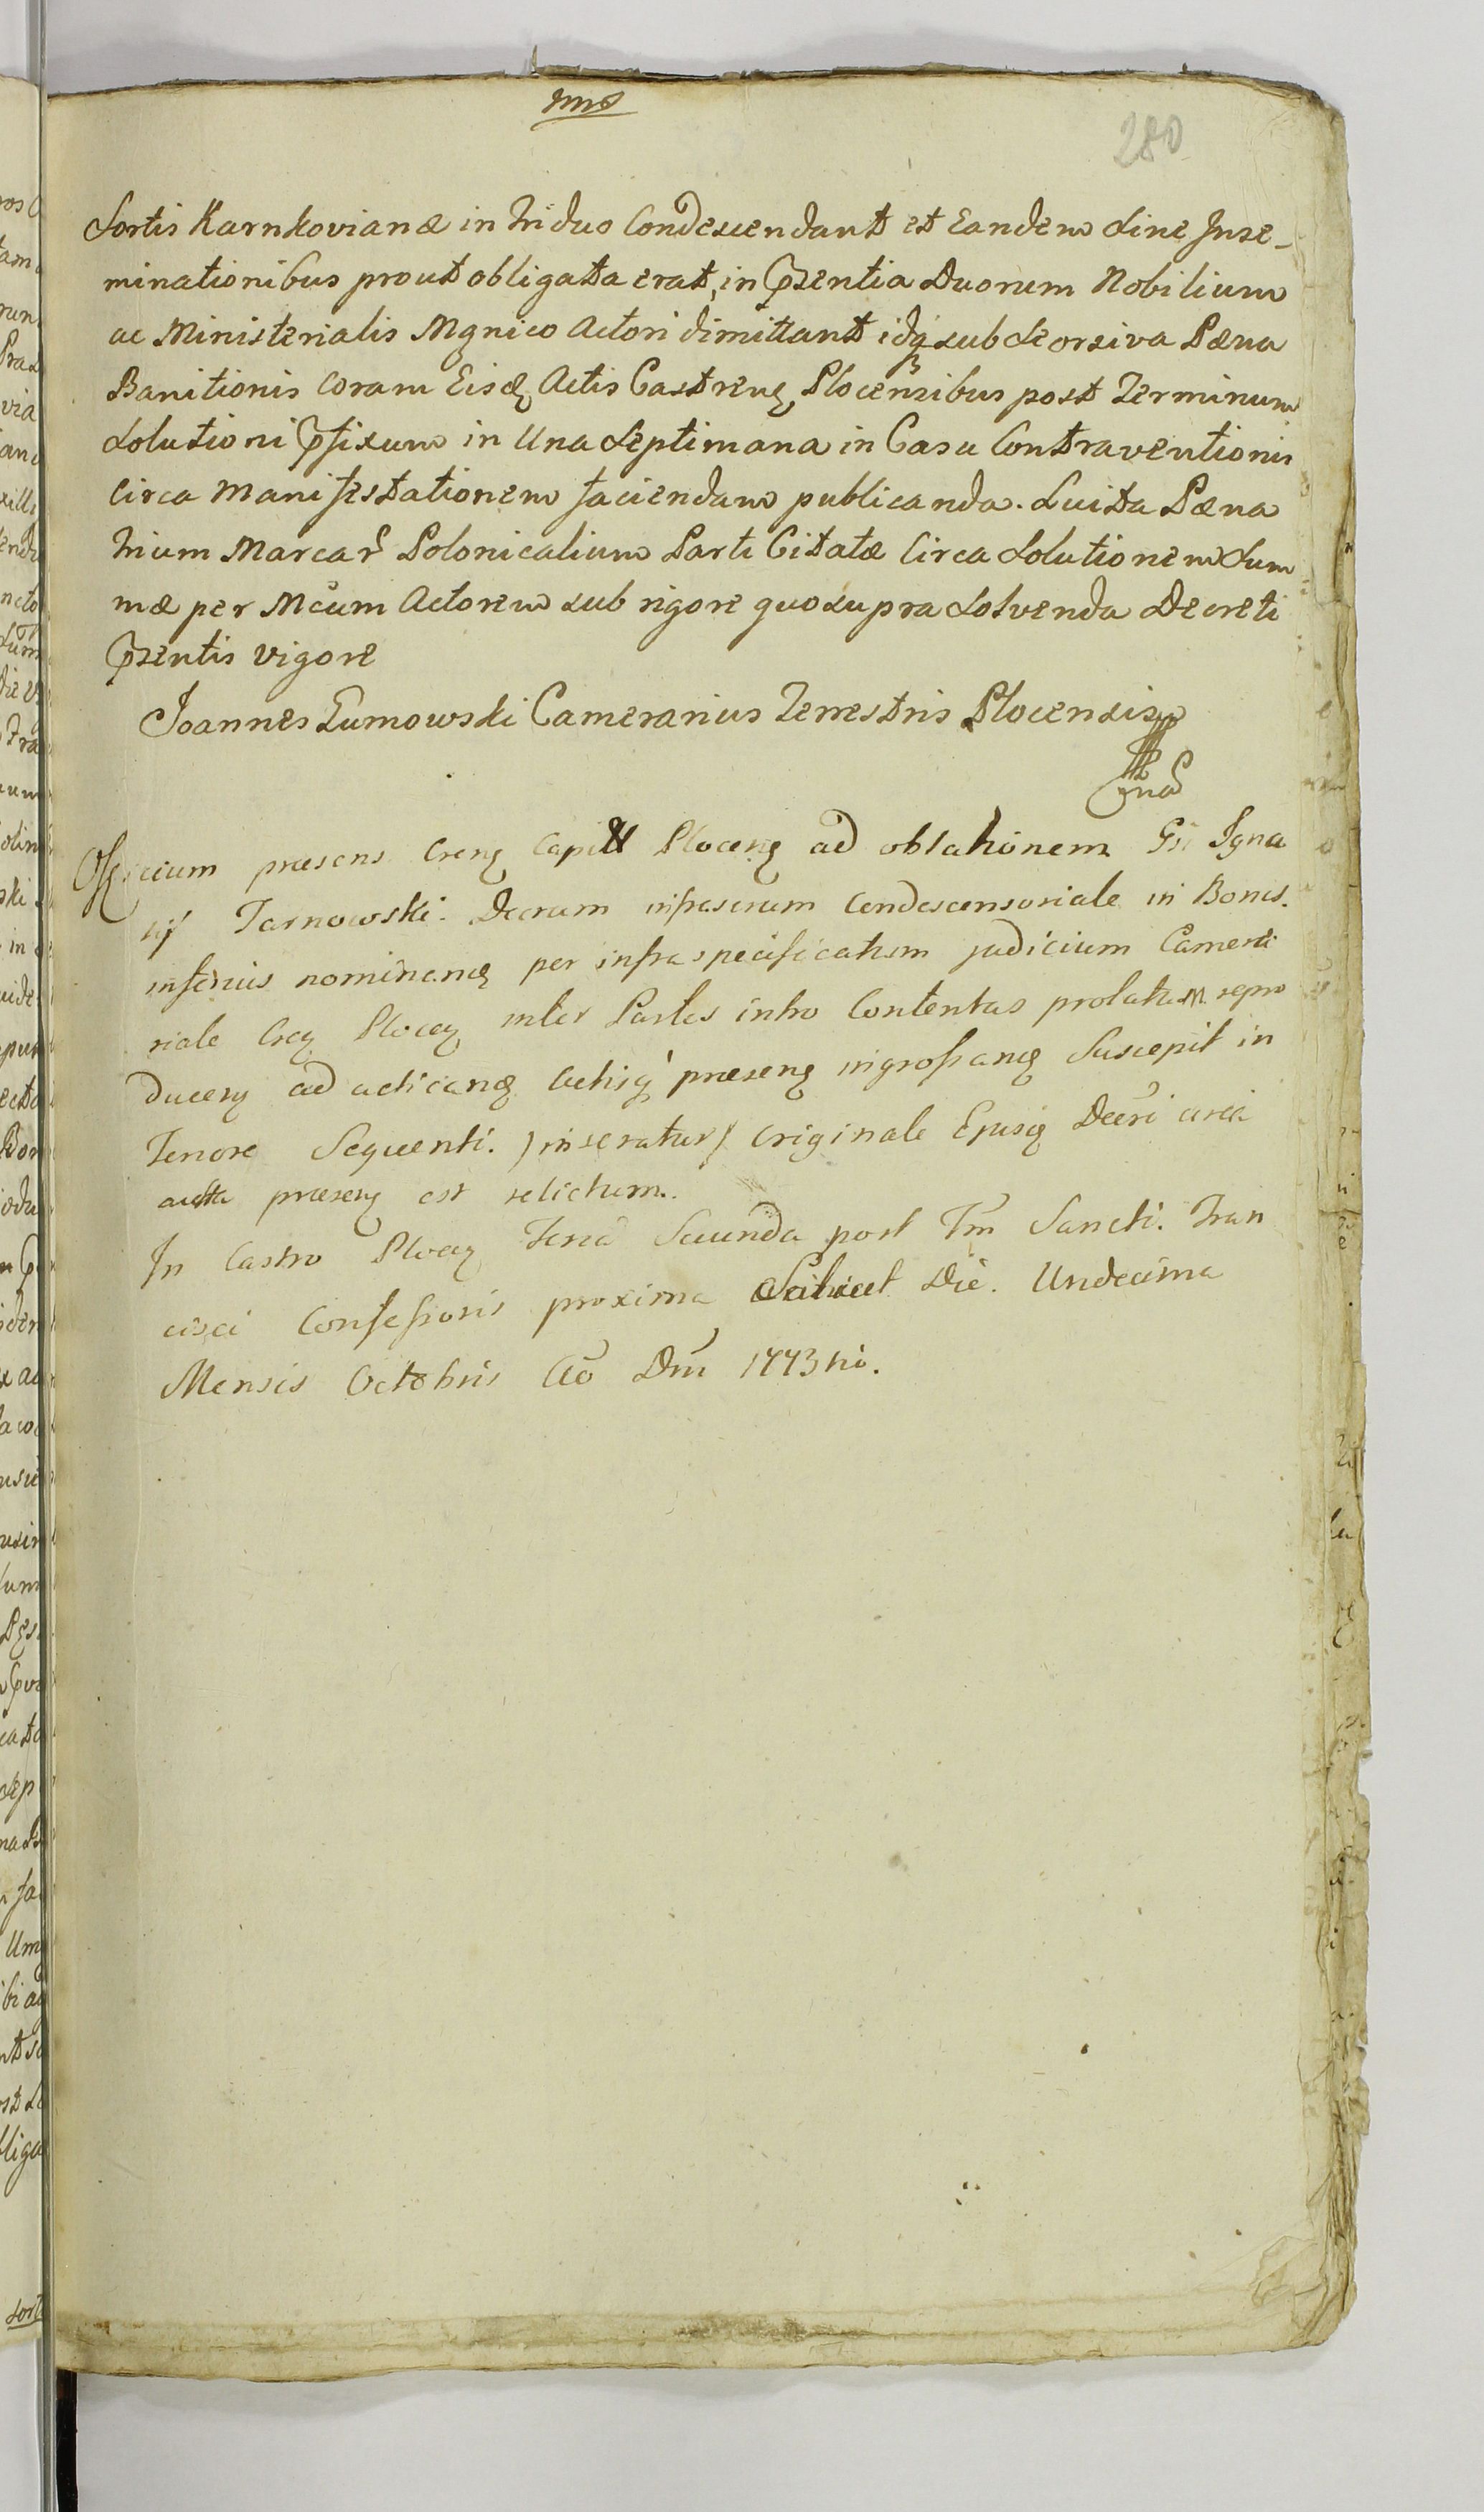 280
Sortis Karnkovianæ in triduo Condescendant et Eandem Sine Inse-
minationibus prout obligata erat, in Pszentia Duorum Nobilium
ac Ministerialis Mgnico Actori dimittant idq sub Seorsiva Pæna
Banitionis Coram Eisdę Actis Castrenę Plocensibus post Terminum
Solutioni Pfixum in Una Septimana in Casu Contraventionis
Circa Manifestationem faciendam publicanda. Luita Pæna
trium Marcar Polonicalium Parti Citatæ Circa Solutionem Sum
mæ per Mcum Actorem sub rigore quo supra Solvenda Decreti
Psentis vigore
Joannes Sumowski Camerarius Terrestris Plocensis
Officium præsens Crenę Capitt Plocenę ad oblationem Gsi Igna
tij Tarnowski Decrum infrascrum Condescensoriale in Bonis
inferius nominanę per infraspecificatum judicium Camera
riale Creę Plocę inter Partes intro Contentas prolatum repro
ducenę ad acticandę Actisq præsenę ingrossandę Suscepit in
Tenore Sequenti. /inseratur/ Originale Ejusdę Decri circa
acta præsenę est relictum.
In Castro Plocenę Feria Secunda post Fm Sancti Fran
cisci Confessoris proxima Scilicet Die Undecima
Mensis Octobris Ao Dni 1773tio.